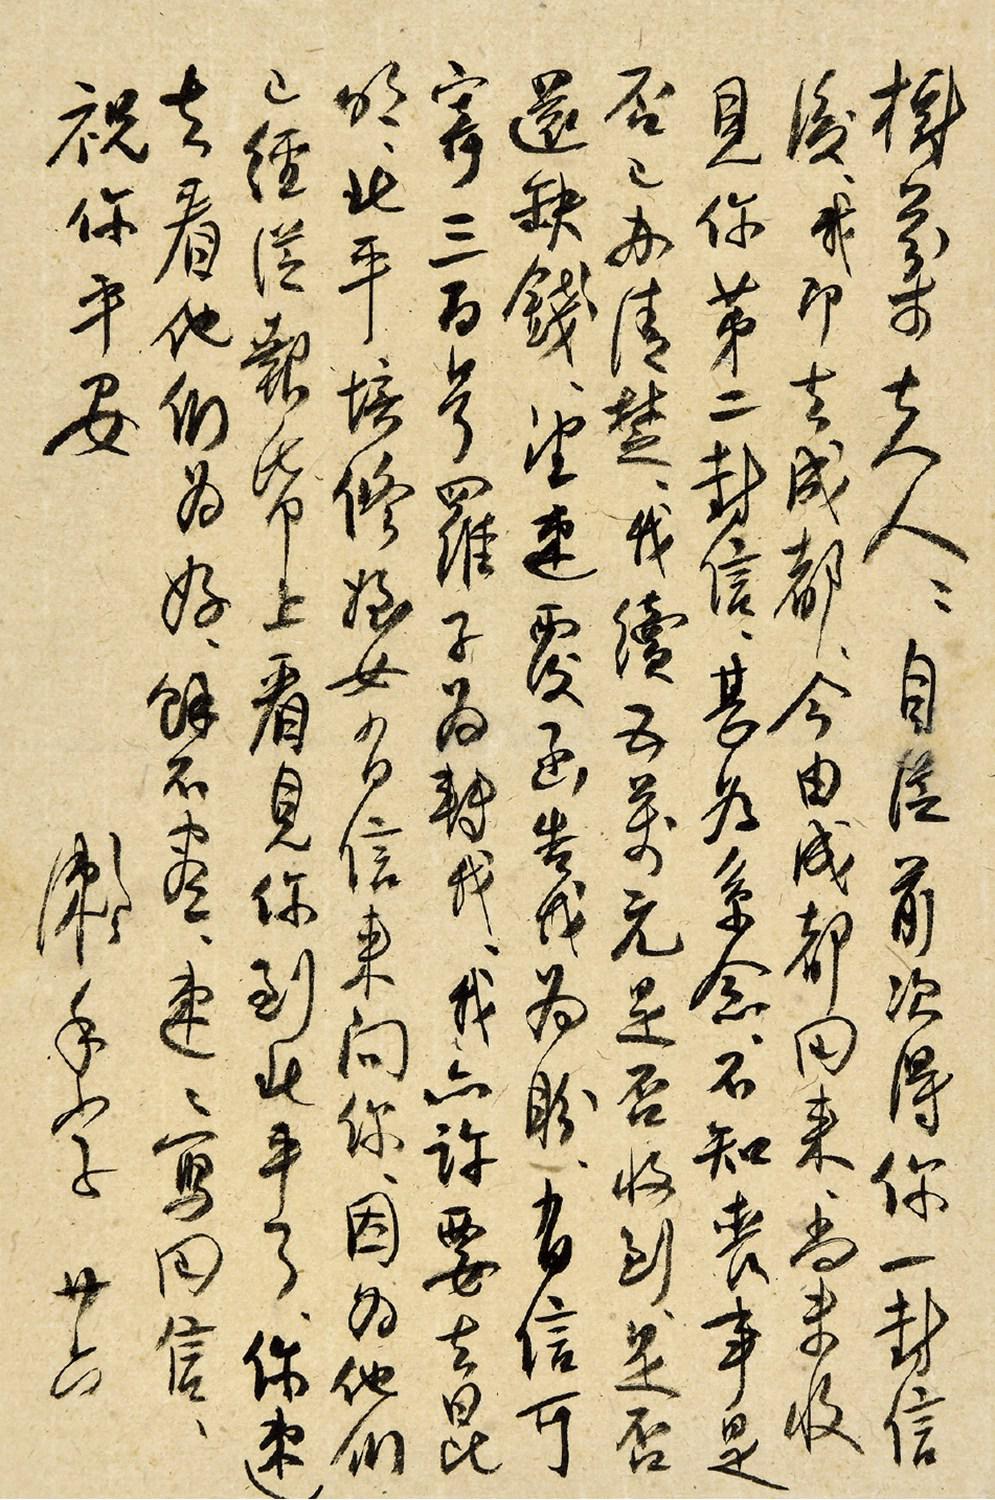 樹芬大夫人：自從前次得你一封信
後、我即去成都、今由成都回來、尚未收
見你第二封信、甚為系念、不知喪事是
否已办清楚、我續五萬元是否收到、是否
還缺錢、望速覆函告我為盼、有信可
寄三百号羅子为轉我、我亦許要去昆
明、北平培修姪女有信來问你、因为他们
已經從報帋上看見你到北平了、你速
去看他们为好、餘不盡、速、寫回信、
祝你平安
手字 廿六